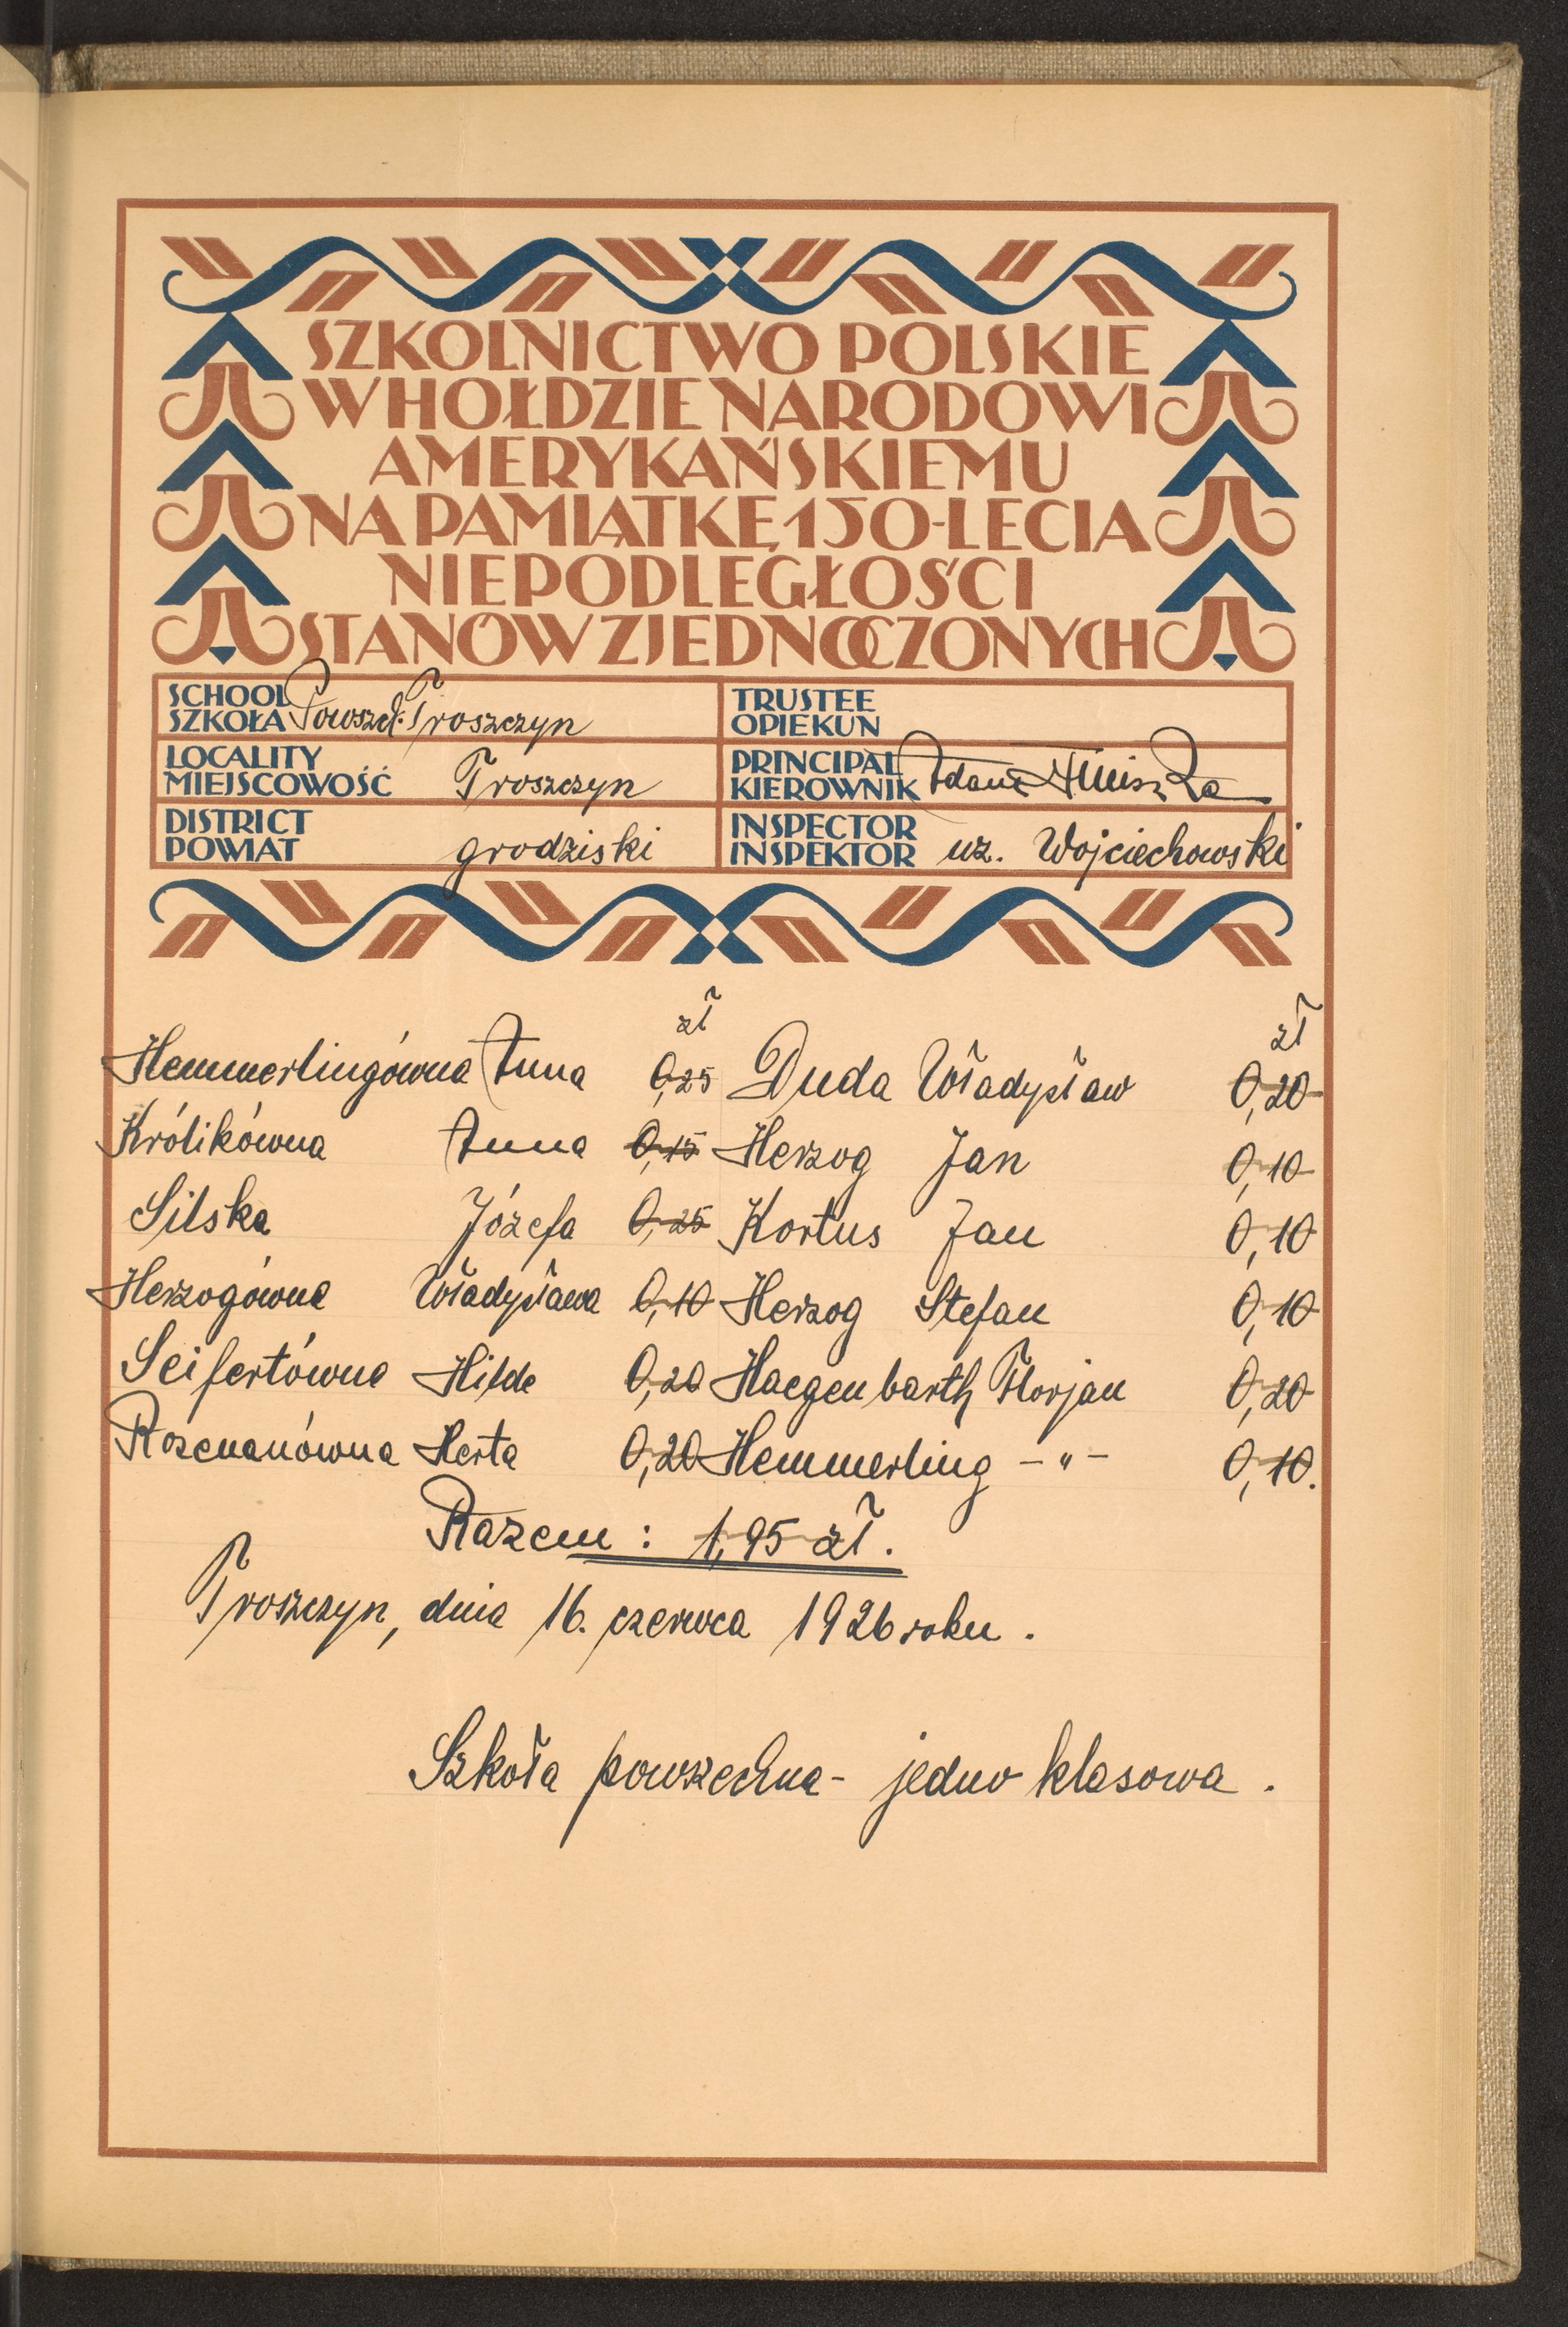 SZKOLNICTWO POLSKIE
W HOŁDZIE NARODOWI
AMERYKAŃSKIEMU
NA PAMIĄTKĘ 150-LECIA
NIEPODLEGŁOŚCI
STANÓW ZJEDNOCZONYCH
SCHOOL
SZKOŁA Powszch. Troszczyn
LOCALITY
MIEJSCOWOŚĆ Troszczyn
DISTRICT
POWIAT grodziski
TRUSTEE
OPIEKUN
PRINCIPAL
KIEROWNIK
INSPECTOR
INSPEKTOR wz. Wojciechowski
zł zł
Hemmerlingówna Anna 0,25 Duda Władysław 0,20
Królikówna Anna 0,15 Herzog Jan 0,10
Silska Józefa 0,25 Kortus Jan 0,10
Herzogówna Władysława 0,10 Herzog Stefan 0,10
Seifertówna Hilda 0,20 Haegenbarth Florjan 0,20
Rozenanówna Herta 0,20 Hemmerling -"- 0,10.
Razem : 1,95 zł.
Troszczyn, dnia 16. czerwca 1926 roku.
Szkoła powszechna - jedno klasowa.